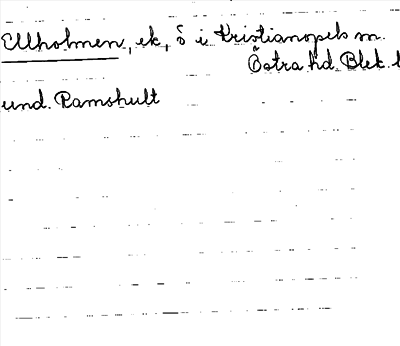 Ullholmen, ek, ö i Kristianopels sn.
Östra hd. Blek. l
und. Ramshult